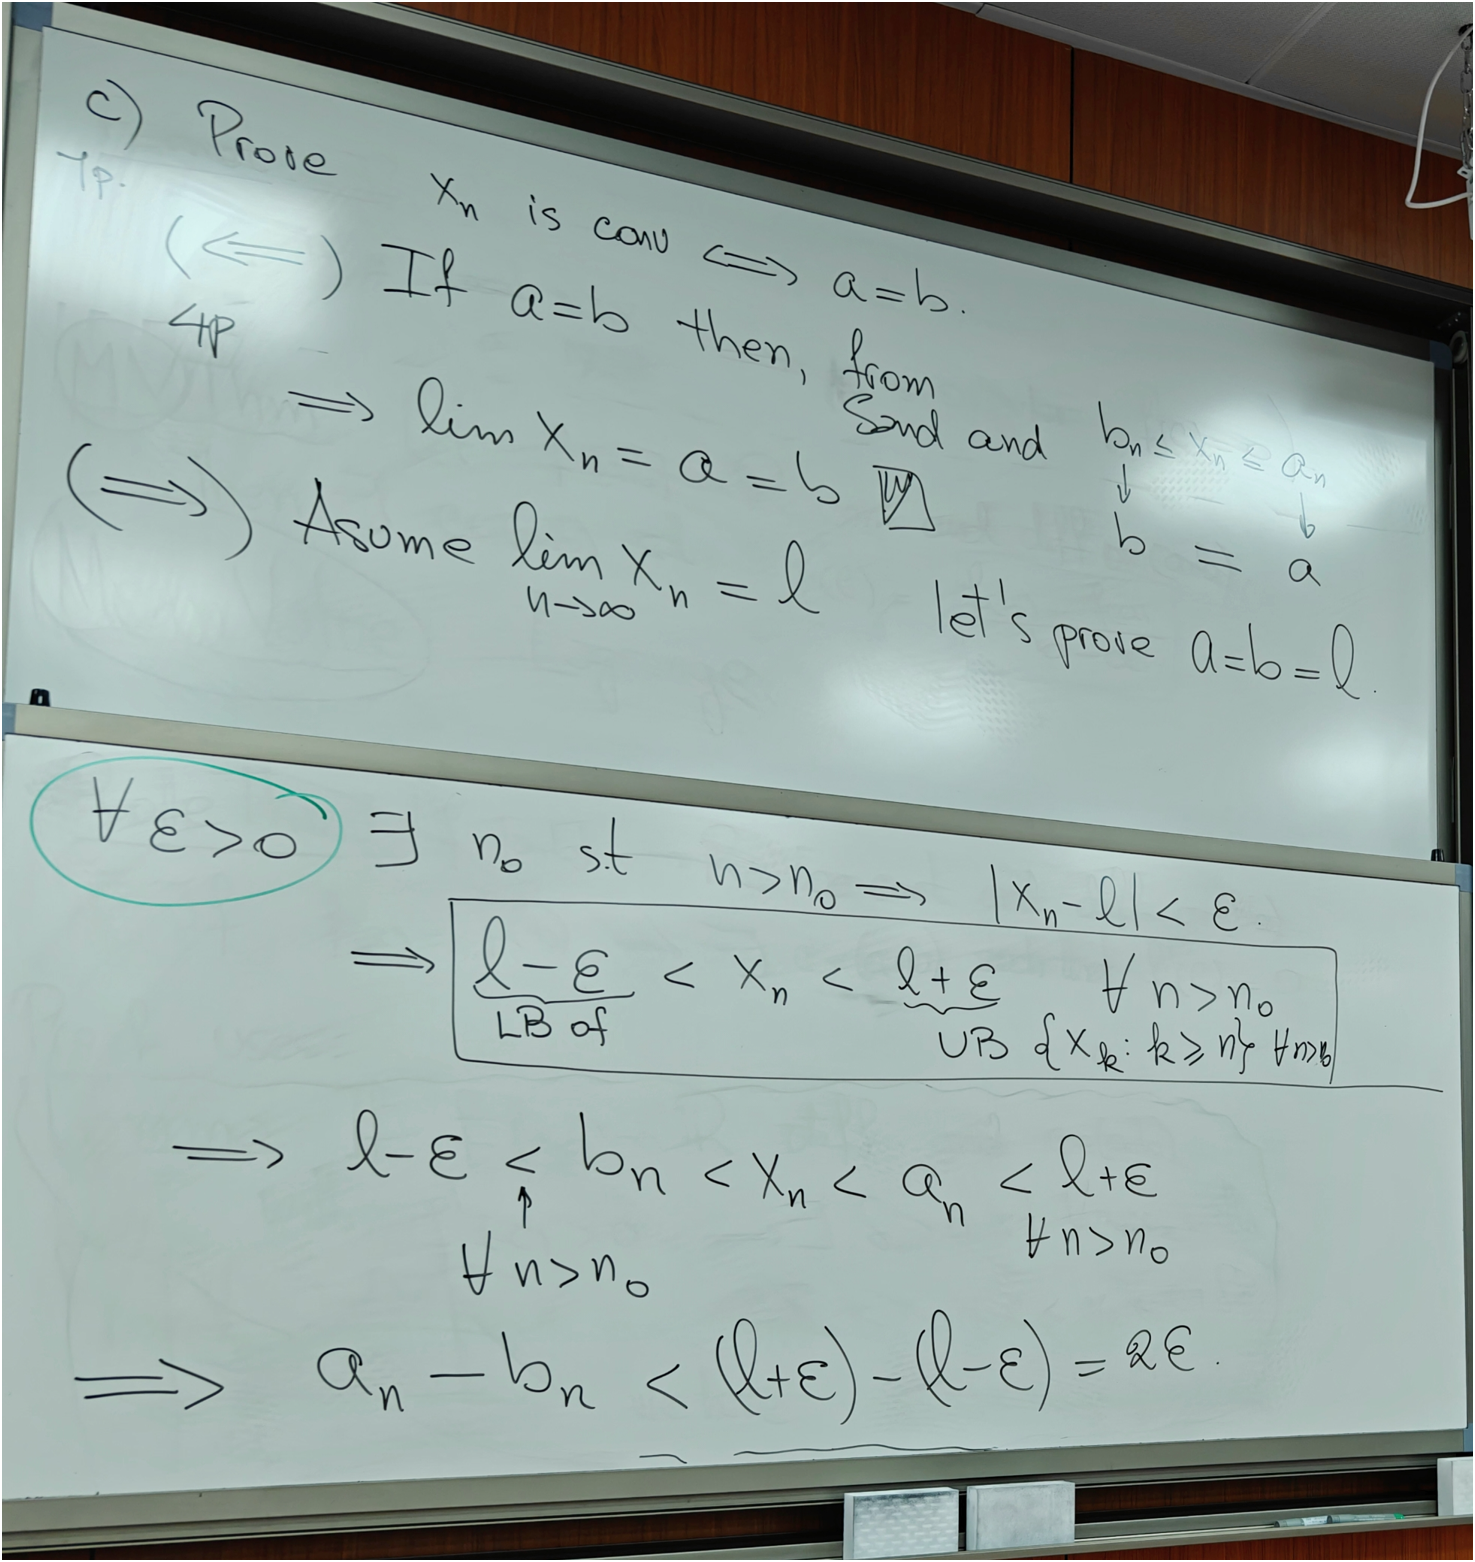 c) Prove xₙ is conv ⟺ a=b.
7p.
(⟸) If a=b then, from
4p
Sand and bₙ ≤ xₙ ≤ aₙ
↓ ↓
b = a
⟹ lim xₙ = a = b
(⟹) Asume lim xₙ = l let's prove a=b=l.
n→∞
∀ ε>0 ∃ n₀ st n>n₀ ⟹ |xₙ-l| < ε.
⟹ l-ε < xₙ < l+ε ∀ n>n₀
LB of UB {xₖ: k≥n} ∀n>n₀
⟹ l-ε < bₙ < xₙ < aₙ < l+ε
↑ ∀ n>n₀
∀ n>n₀
⟹ aₙ - bₙ < (l+ε)-(l-ε) = 2ε.